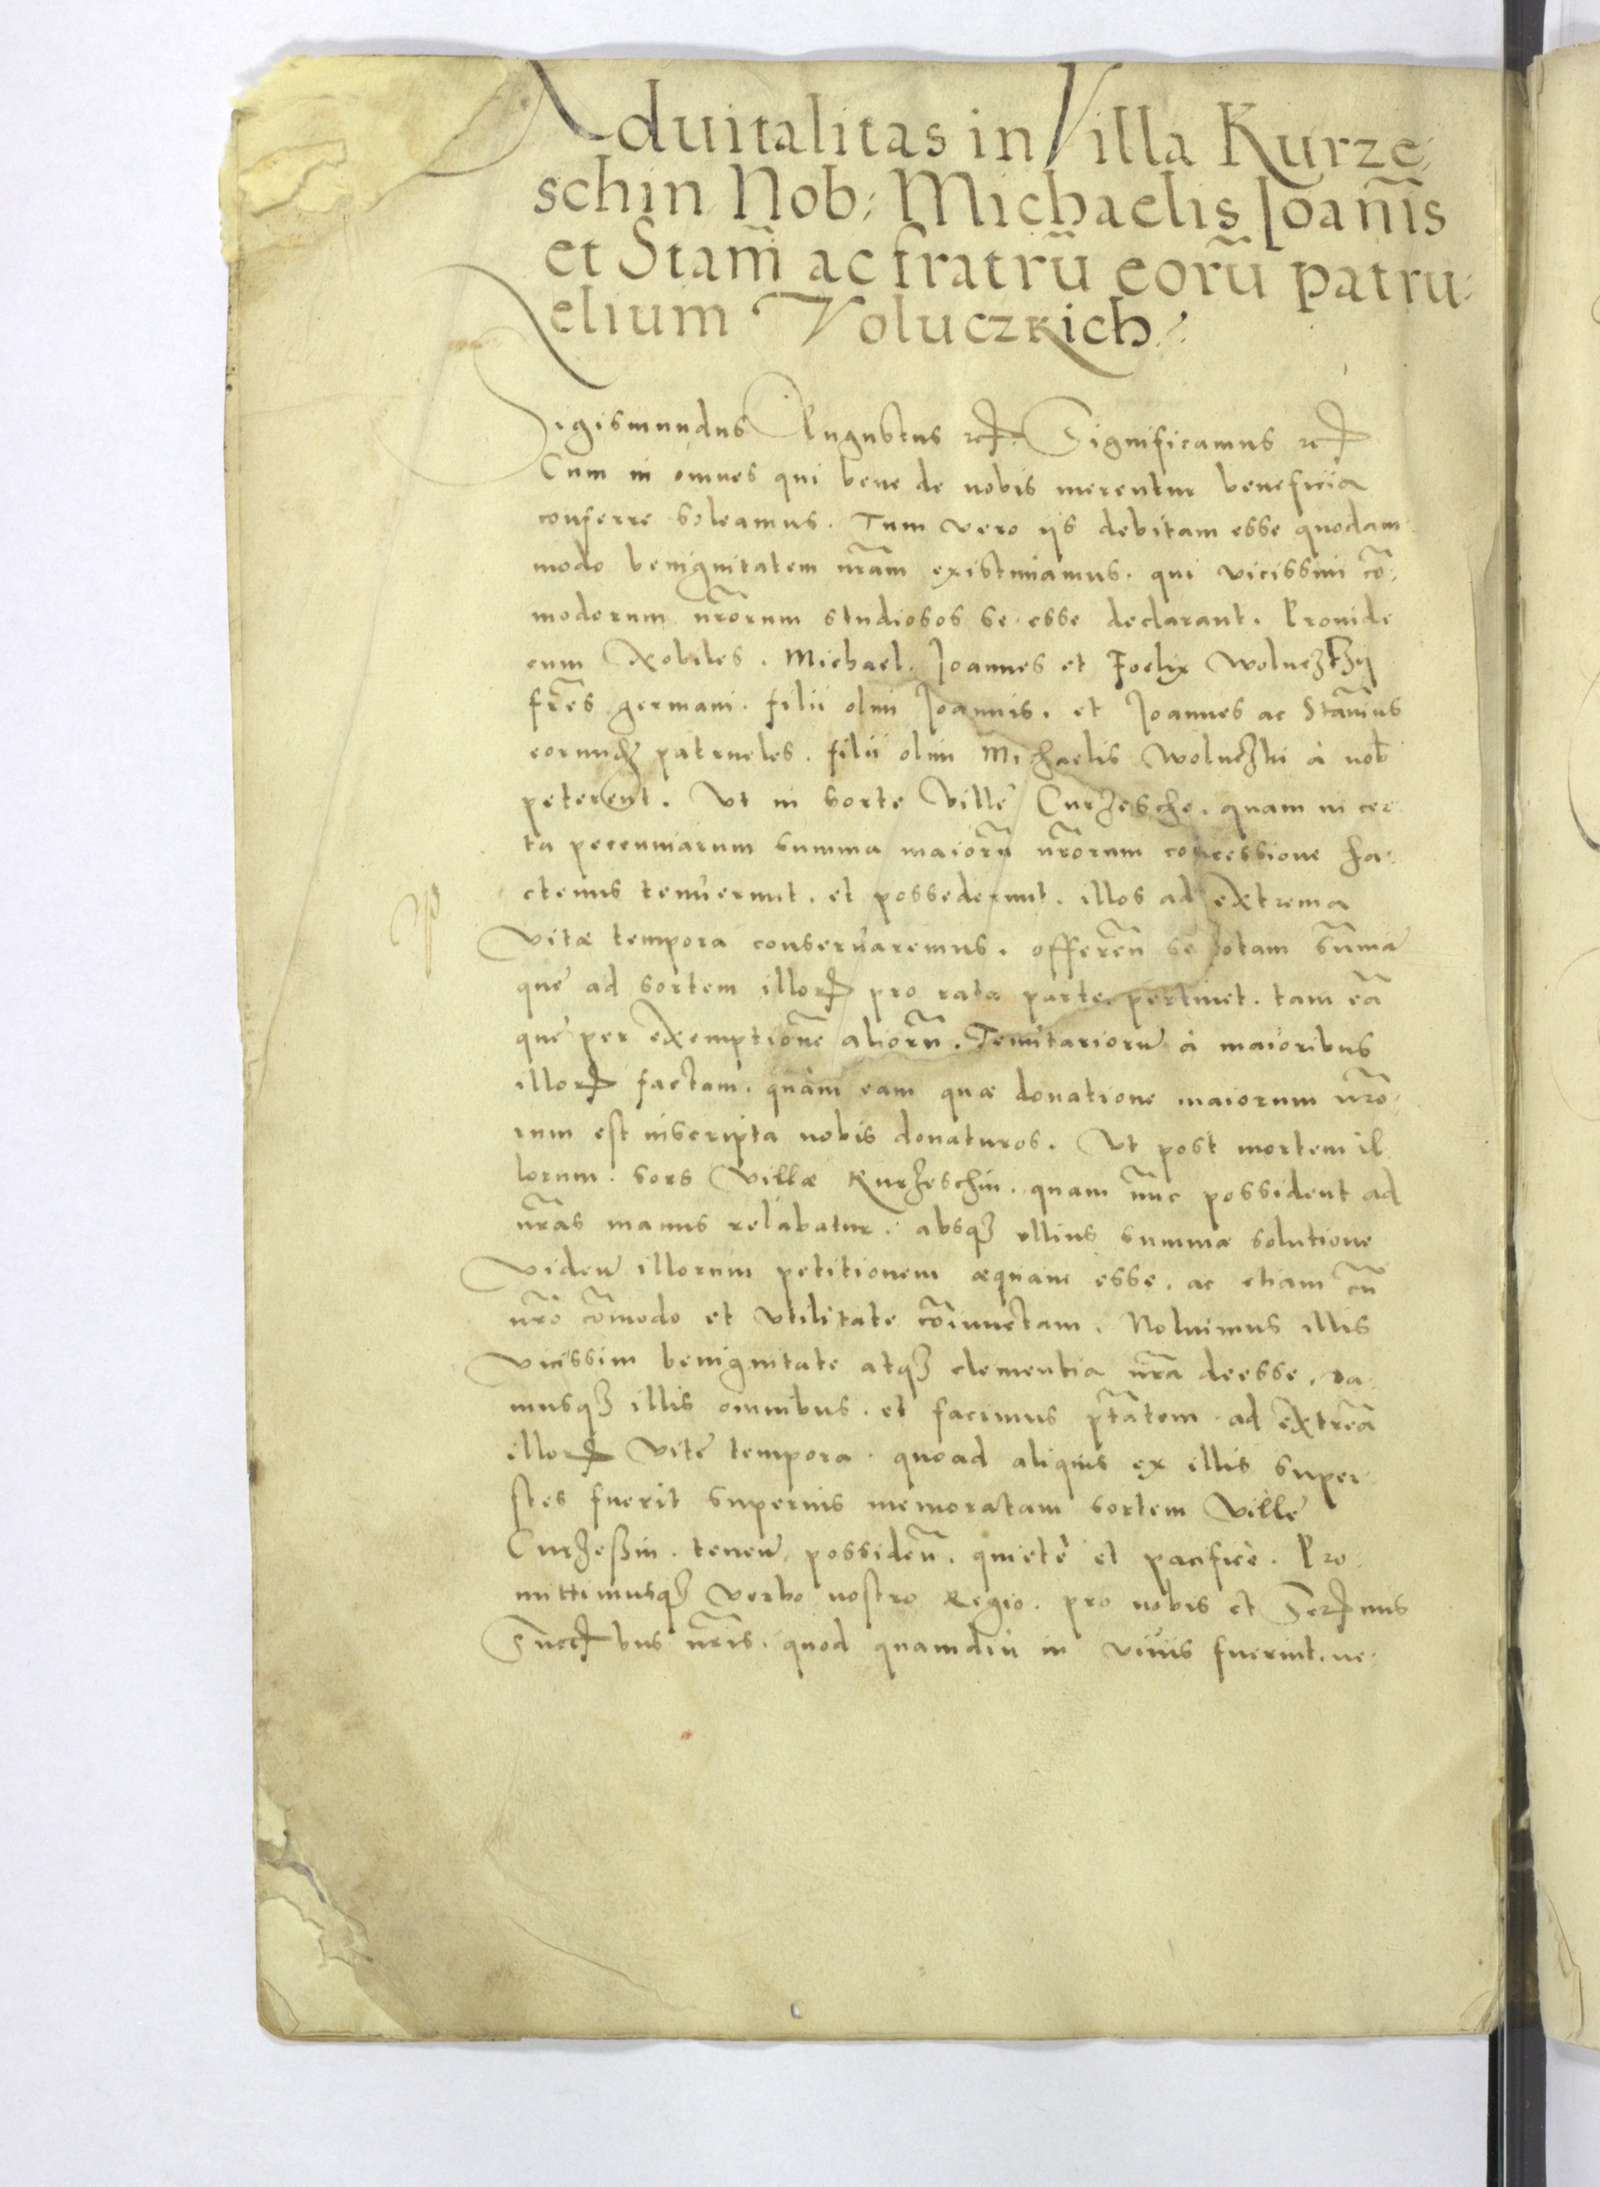 Aduitalitas in Villa Kurze:
schin Nob: Michaelis Joan̄is
et Stan̄i ac fratrū eorū patru:
elium Voluczkich:
Sigismundus Augustus etc. Significamus etc.
Cum in omnes qui bene de nobis merentur beneficia
conferre soleamus. Tum vero ijs debitam esse quodam
modo benignitatem nr̄am existimamus. qui vicissim cō:
modorum nr̄orum studiosos se esse declarant. Proinde
cum Nobiles. Michael. Joannes et Foelix Woluczkzy
fr̄es germani. filii olim Joannis. et Joannes ac Stan̄ius
eorundem patrueles. filii olim Michaelis Woluczki à nob
peterent. Vt in sorte Ville Curzesche. quam in cer
ta pecuniarum summa maiorū nr̄orum concessione ha:
ctenus tenuerunt. et possederunt. illos ad extrema
vitæ tempora conseruaremus. offeren̄ se totam sum̄ā
que ad sortem illorum pro rata parte pertinet. tam eā
que per exemptionē aliorū. Tenutariorū à maioribus
illorum factam. quàm eam quæ donatione maiorum nr̄o:
rum est inscripta nobis donaturos. Vt post mortem il
lorum. sors Villæ Kurzeschin. quam nūc possident ad
nr̄as manus relabatur. absq3 ullius summæ solutione
Viden̄ illorum petitionem æquam esse. ac etiam cū
nr̄o cōmodo et vtilitate cōiunctam. Noluimus illis
vicissim benignitate atq3 clementia nr̄a deesse, da
musq3 illis omnibus. et facimus pt̄atem ad extremā
illorum vite tempora. quoad aliquis ex illis super
stes fuerit superius memoratam sortem Ville
Curzeschin. tenen̄ possiden̄. quietè et pacificè. Pro
mittimusq3 verbo nostro Regio. pro nobis et Ser. nus
Succ. bus nr̄is. quod quamdiu in viuis fuerint. ne